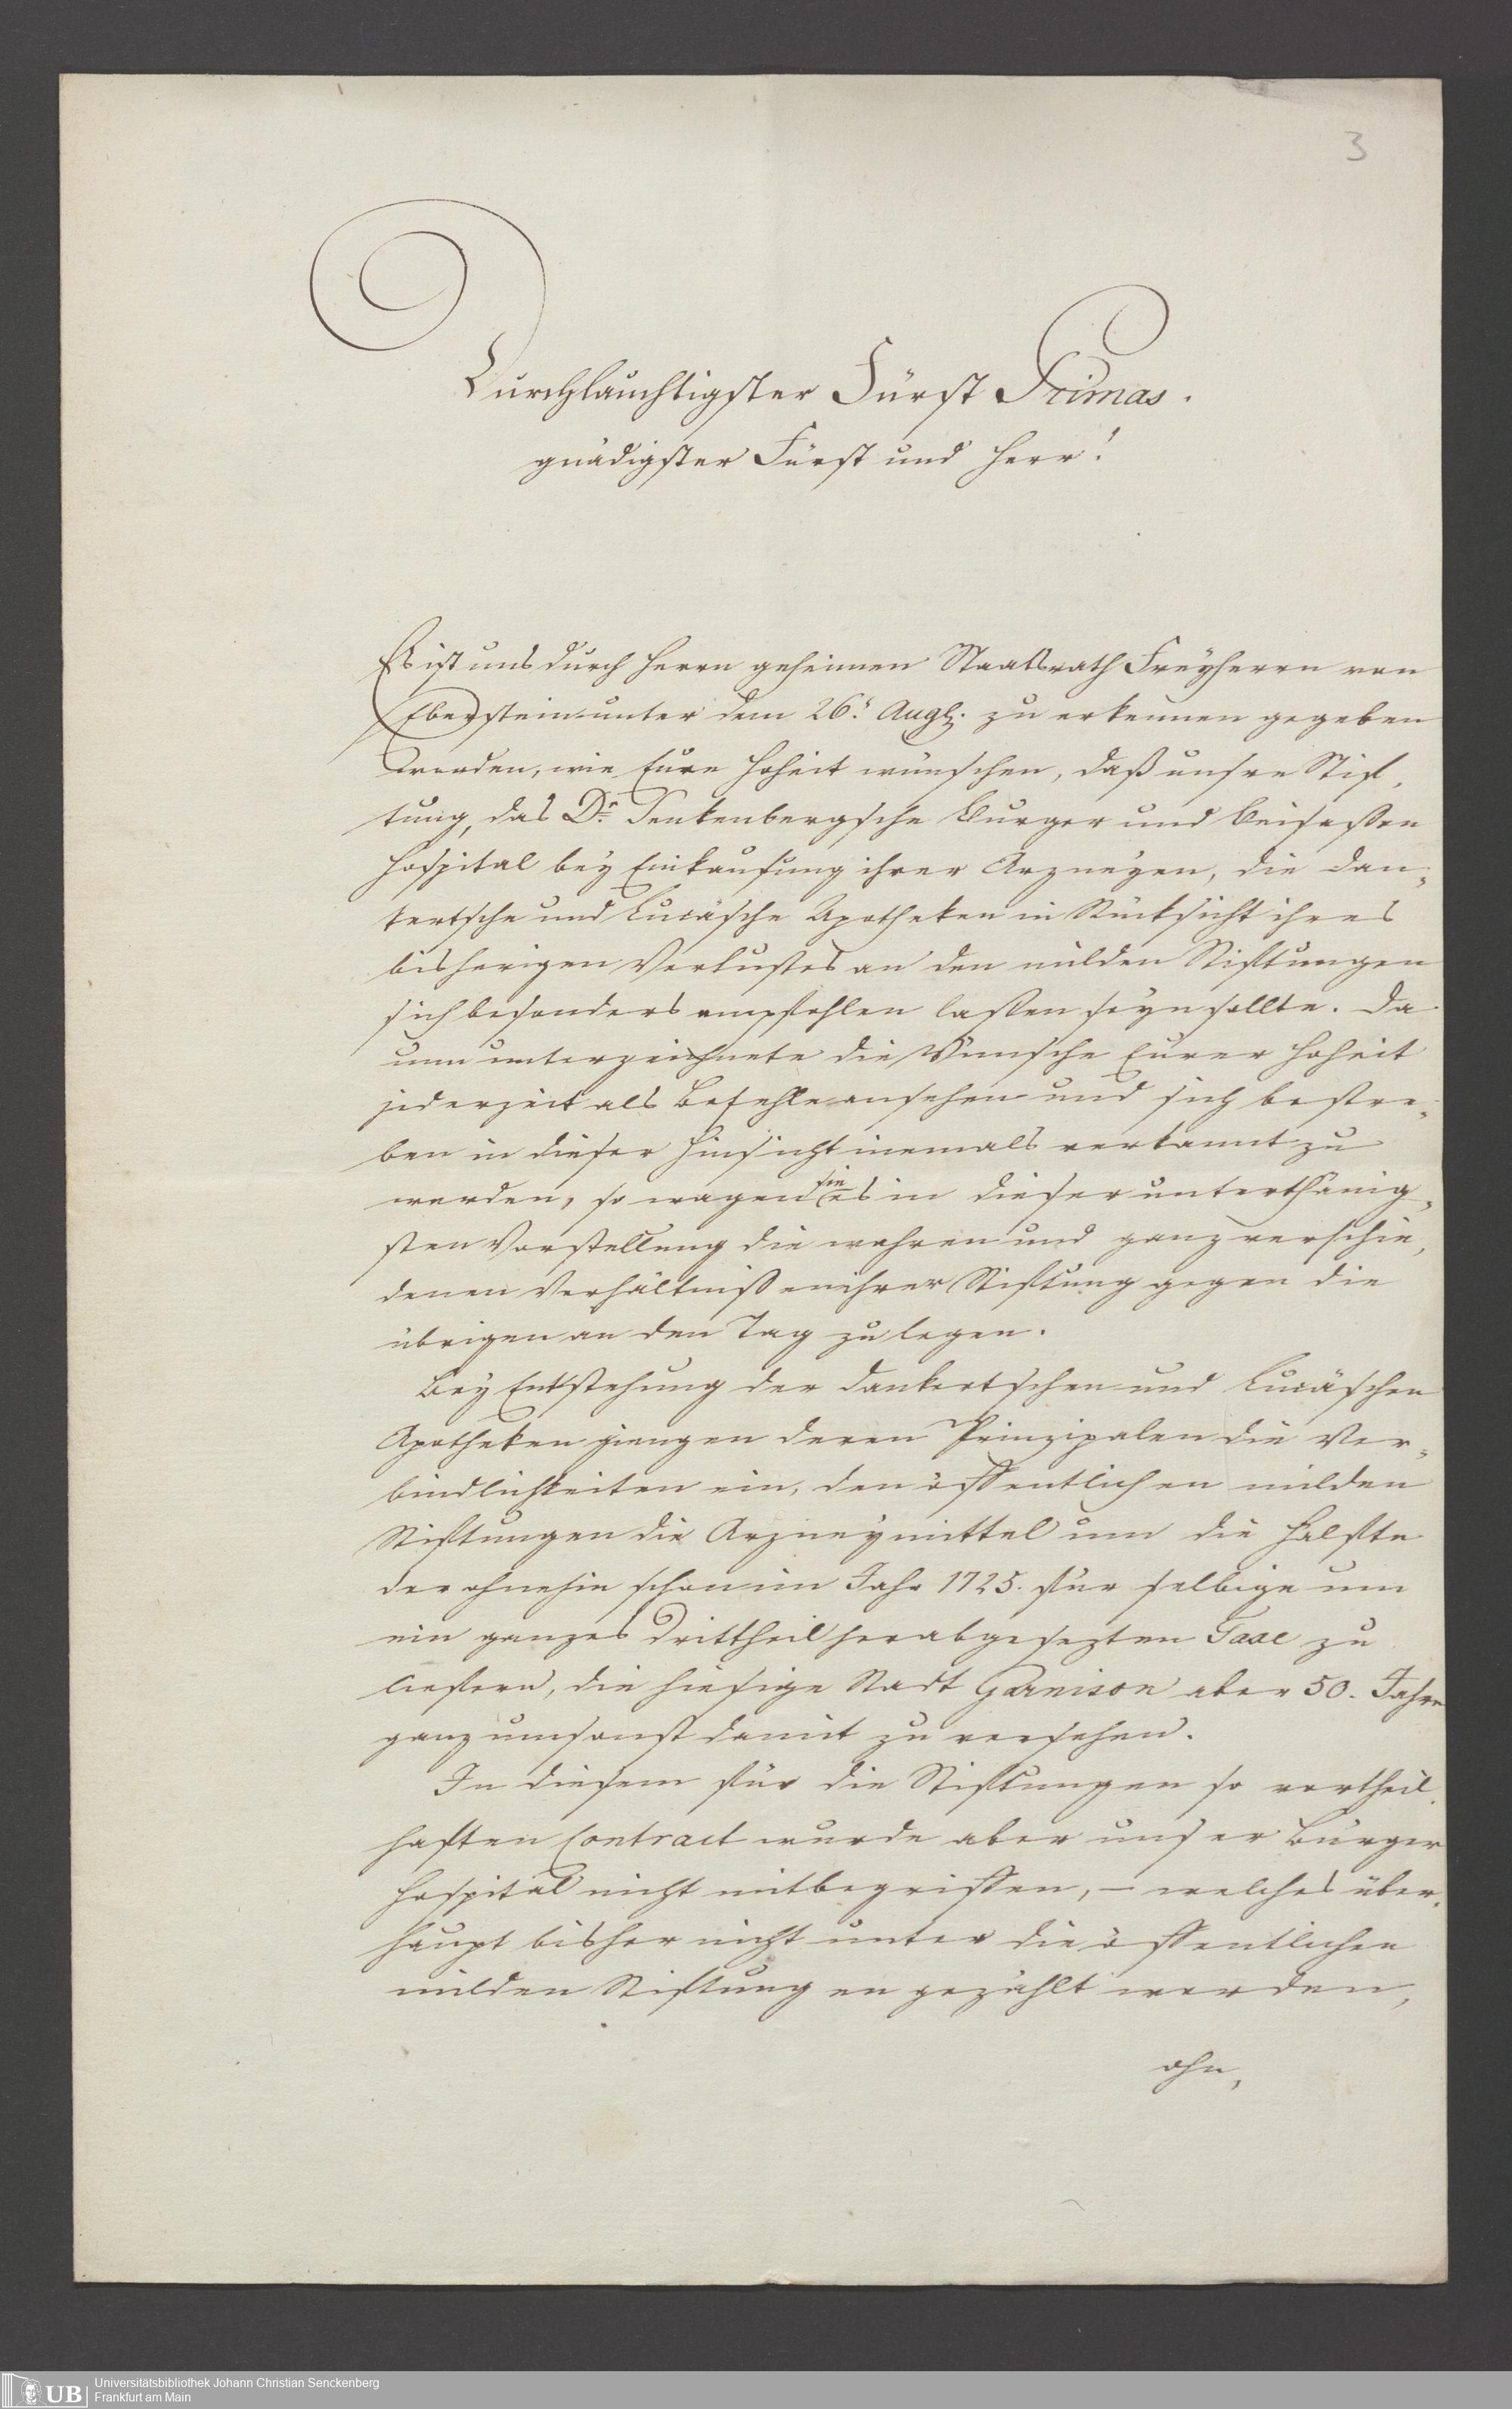 3
Durchlauchtigster Fürst Primas.
gnädigster Fürst und Herr!
Es ist uns durch Herrn geheimen Staatsrath Freÿherrn von
Eberstein unter dem 26.t Augst. zu erkennen gegeben
worden, wie Eure Hoheit wünschen, daß unsre Stif,
tung, das Dr. Senkenbergsche Burger und Beisaßen
Hospital beÿ Einkaufung ihrer Arzneÿen, die Dan„
kertsche und Lucäsche Apotheken in Rücksicht ihres
bisherigen Verlustes an den milden Stiftungen
sich besonders empfohlen laßen seÿn sollte. Da
nun unterzeichnete die Wünsche Eurer Hoheit
jederzeit als Befehle ansehen und sich bestre„
ben in dieser Hinsicht niemals verkannt zu
werden, so wagen sie es in dieser unterthänig„
sten Vorstellung die wahren und ganz verschie,
denen Verhältniß en ihrer Stiftung gegen die
übrigen an den Tag zu legen.
Beÿ Entstehung der Dankertschen und Lucäschen
Apotheken giengen deren Prinzipalen die Ver„
bindlichkeiten ein, den öffentlichen milden
Stiftungen die Arzneÿmittel um die Hälfte
der ohnehin schon im Jahr 1725. für selbige um
ein ganzes Drittheil herabgesezten Taxe zu
liefern, die hiesige Stadt Garnison aber 50. Jahre
ganz umsonst damit zu versehen.
In diesem für die Stiftungen so vortheil,
haften Contract wurde aber unser Bürger
Hospital nicht mitbegriffen, – welches über,
haupt bisher nicht unter die öffentlichen
milden Stiftung en gezählt worden,
ohn,
UB
Universitätsbibliothek Johann Christian Senckenberg
Frankfurt am Main